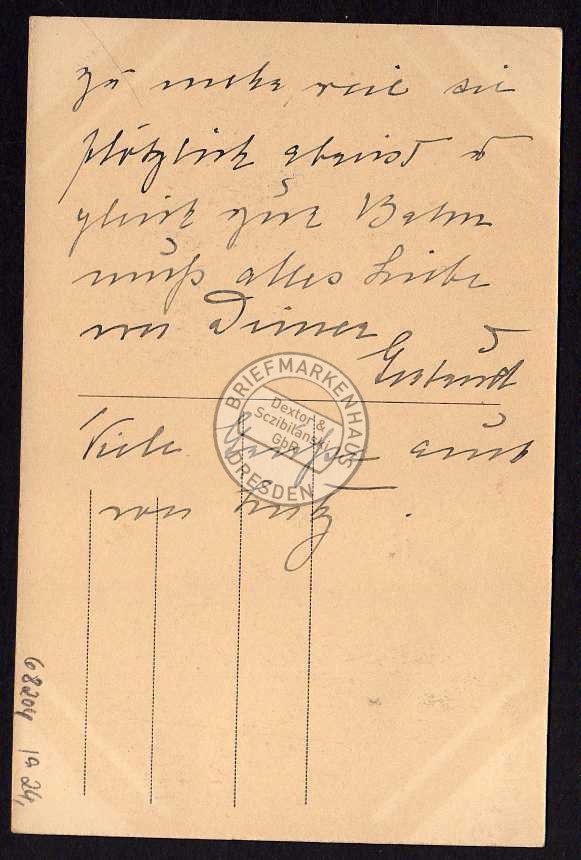 zu mehr weil sie
plötzlich abreist u
gleich zur Bahn
muß alles Liebe
von Deiner
Viele Grüße auch
von Lutz.
BRIEFMARKENHAUS
Dextor &
Sczibilanski
GbR
DRESDEN
68204 19 24,